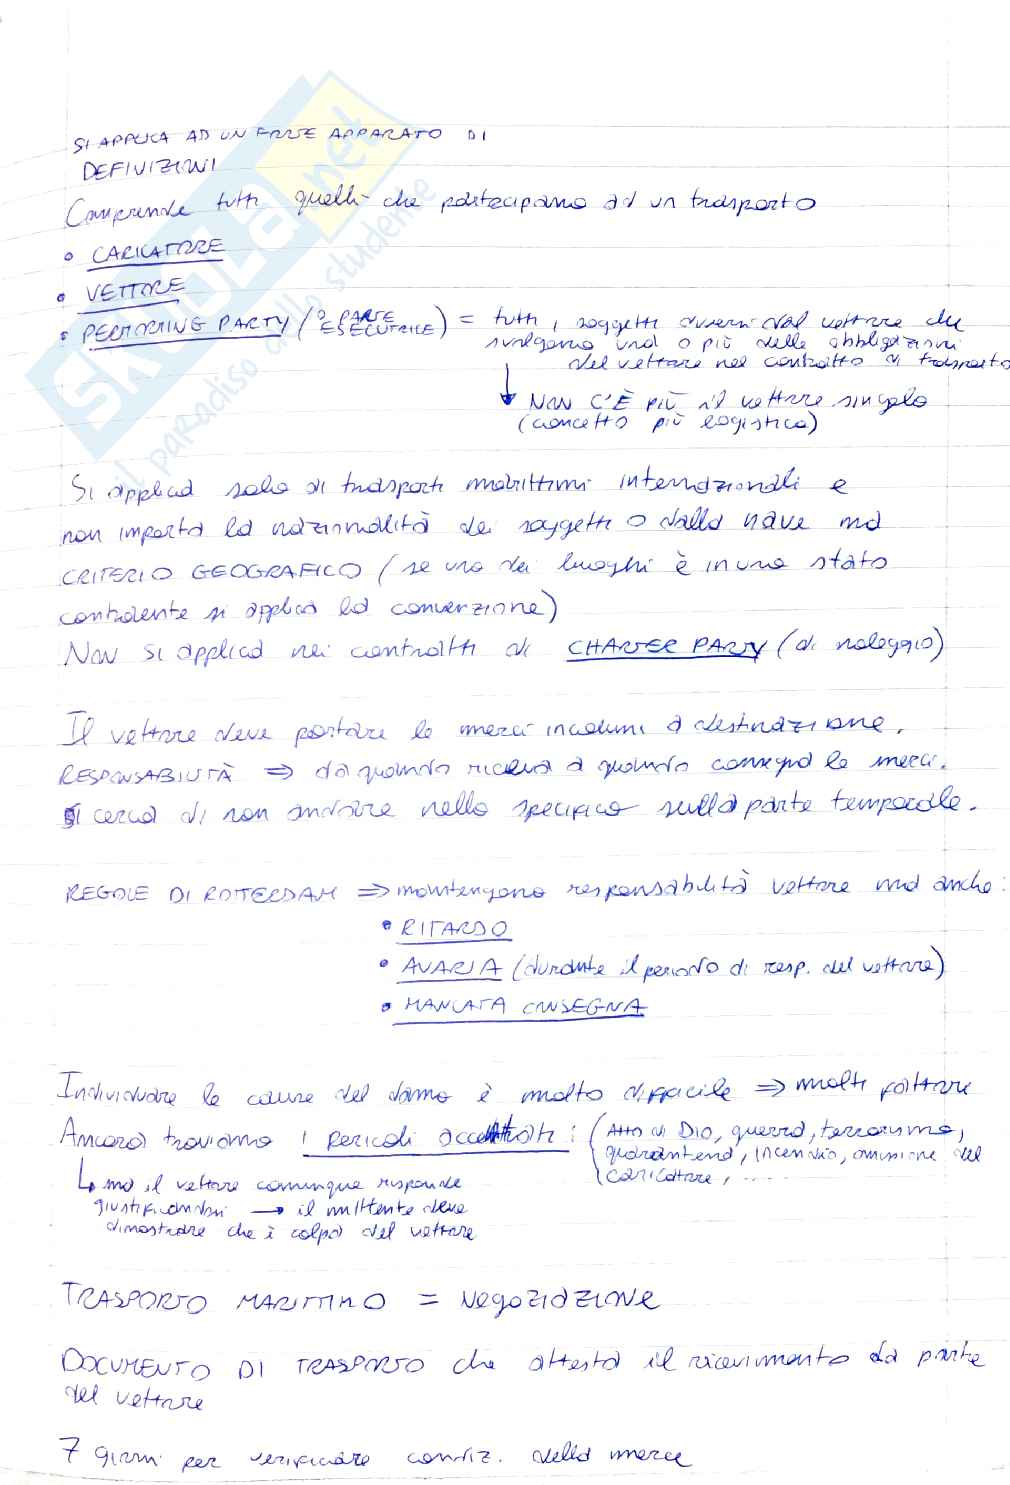 SI APPLICA AD UN FORTE APPARATO DI
DEFINIZIONI
Comprende tutti quelli che partecipano ad un trasporto
• CARICATORE
• VETTORE
• PERFORMING PARTY (O PARTE ESECUTRICE) = tutti i soggetti diversi dal vettore che
svolgono una o più delle obbligazioni
del vettore nel contratto di trasporto
↓ NON C'È PIÙ il vettore singolo
(concetto più logistica)
Si applica solo ai trasporti marittimi internazionali e
non importa la nazionalità dei soggetti o della nave ma
CRITERIO GEOGRAFICO (se uno dei luoghi è in uno stato
contraente si applica la convenzione)
Non si applica nei contratti di CHARTER PARTY (di noleggio)
Il vettore deve portare le merci incolumi a destinazione.
RESPONSABILITÀ ⇒ da quando riceve a quando consegna le merci.
Si cerca di non andare nello specifico sulla parte temporale.
REGOLE DI ROTTERDAM ⇒ mantengono responsabilità vettore ma anche:
• RITARDO
• AVARIA (durante il periodo di resp. del vettore)
• MANCATA CONSEGNA
Individuare le cause del danno è molto difficile ⇒ molti fattori
Ancora troviamo i pericoli accettati: (Atto di Dio, guerra, terrorismo,
quarantena, incendio, omissione del
caricatore, ....
↳ ma il vettore comunque risponde
giustificandosi → il mittente deve
dimostrare che è colpa del vettore
TRASPORTO MARITTIMO = Negoziazione
DOCUMENTO DI TRASPORTO che attesta il ricevimento da parte
del vettore
7 giorni per verificare condiz. della merce
SKUOLA.net
il paradiso dello studente